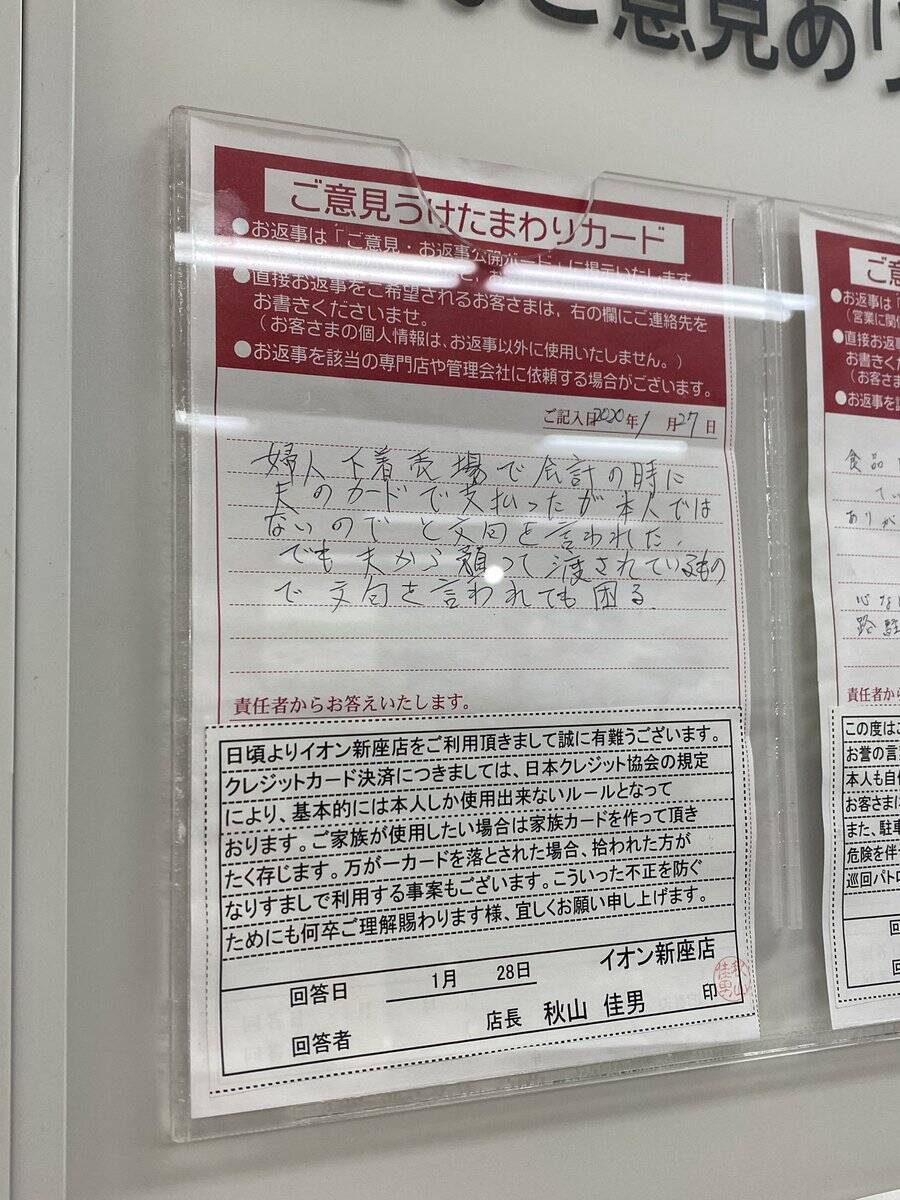 ご意見あり
ご意見うけたまわりカード
●お返事は「ご意見・お返事公開ボード」に掲示いたします。
●直接お返事をご希望されるお客さまは,右の欄にご連絡先を
お書きくださいませ。
(お客さまの個人情報は、お返事以外に使用いたしません。)
●お返事を該当の専門店や管理会社に依頼する場合がございます。
ご記入日2020年1月27日
婦人下着売場で会計の時に
夫のカードで支払ったが本人では
ないのでと文句を言われた.
でも夫から頼って渡されているもの
で文句を言われても困る.
責任者からお答えいたします。
日頃よりイオン新座店をご利用頂きまして誠に有難うございます。
クレジットカード決済につきましては、日本クレジット協会の規定
により、基本的には本人しか使用出来ないルールとなって
おります。ご家族が使用したい場合は家族カードを作って頂き
たく存じます。万が一カードを落とされた場合、拾われた方が
なりすましで利用する事案もございます。こういった不正を防ぐ
ためにも何卒ご理解賜わります様、宜しくお願い申し上げます。
イオン新座店
回答日 1月 28日
回答者 店長 秋山 佳男 印
ご意
●お返事は「
(営業に関
●直接お返事
お書きくだ
(お客さま
●お返事を
食品
ありが
心な
路駐
責任者から
この度は
お誉の言
本人も自
お客さまに
また、駐車
危険を伴
巡回パトロ